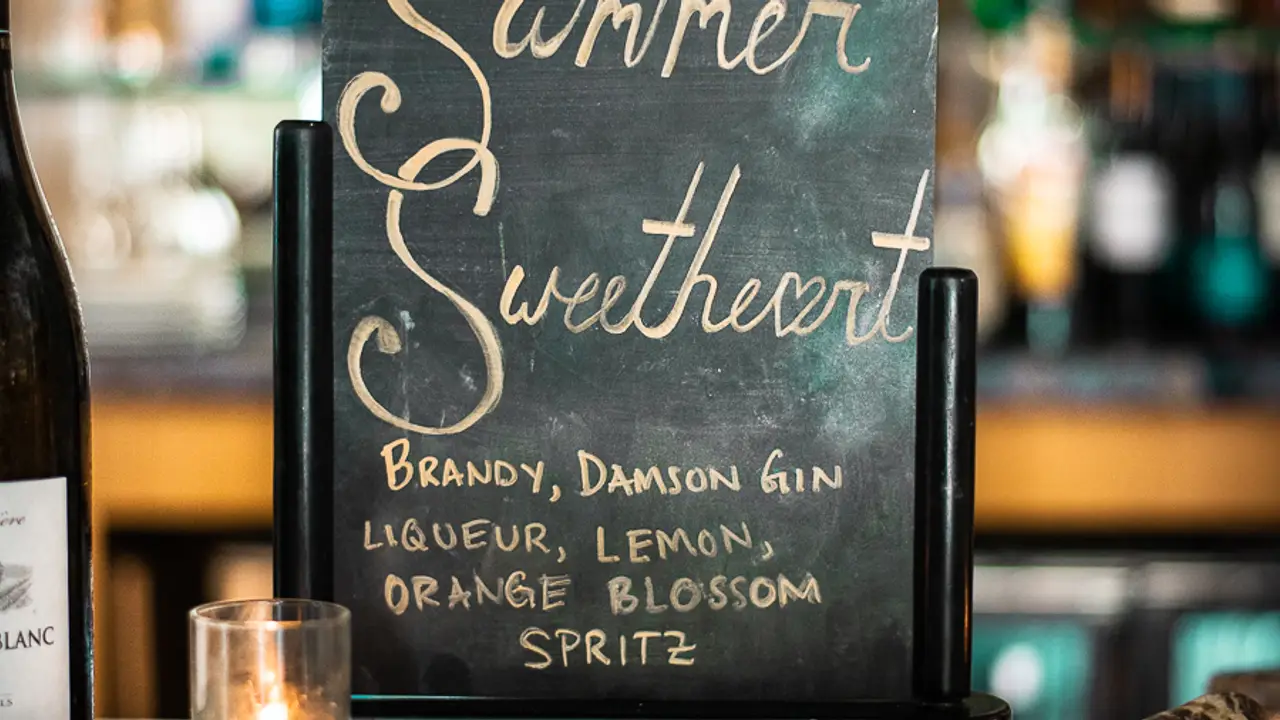 Summer
Sweetheart
BRANDY, DAMSON GIN
LIQUEUR, LEMON,
ORANGE BLOSSOM
SPRITZ
BLANC